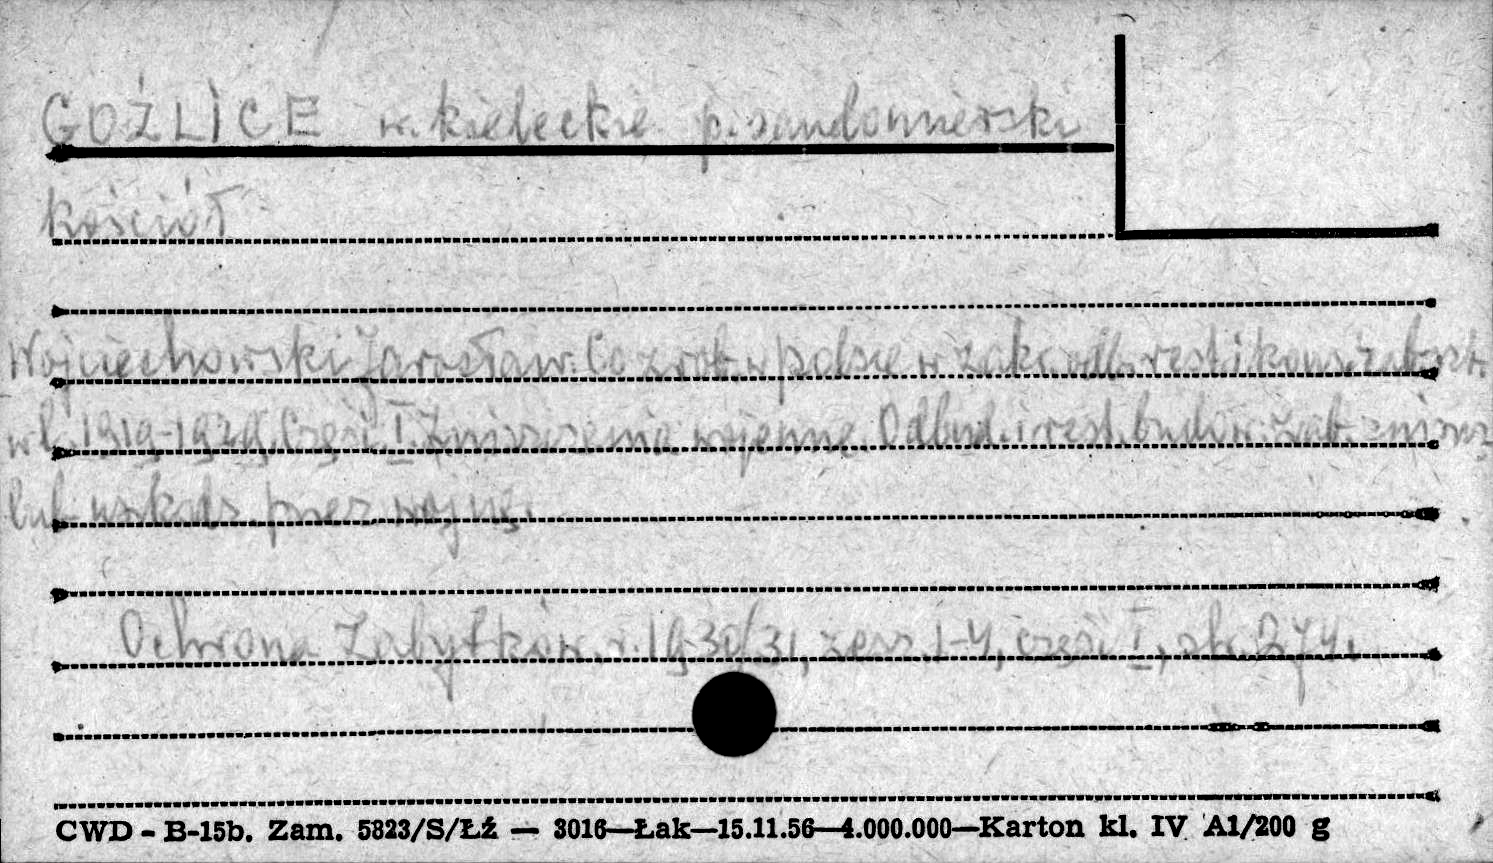 GOŹLICE w. kieleckie p. sandomierski
kościół
Wojciechowski Jarosław: Co zrob. w Polsce w zakr. odb. rest. i kons. zabyt.
w l. 1919-1929. Część I. Zniszczenia wojenne. Odbud. i rest. budow. zab. zniszcz.
lub uszkodz. przez wojnę.
Ochrona Zabytków. r. 1930/31, zesz. 1-4, część I, str. 274.
CWD - B-15b. Zam. 5823/S/Łź — 3016—Łak—15.11.56—4.000.000—Karton kl. IV A1/200 g